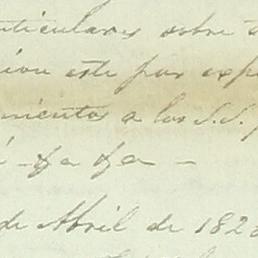 ticulares sobre
cion este por exp
mientos a los S.S.
&a &a —
de Abril de 182